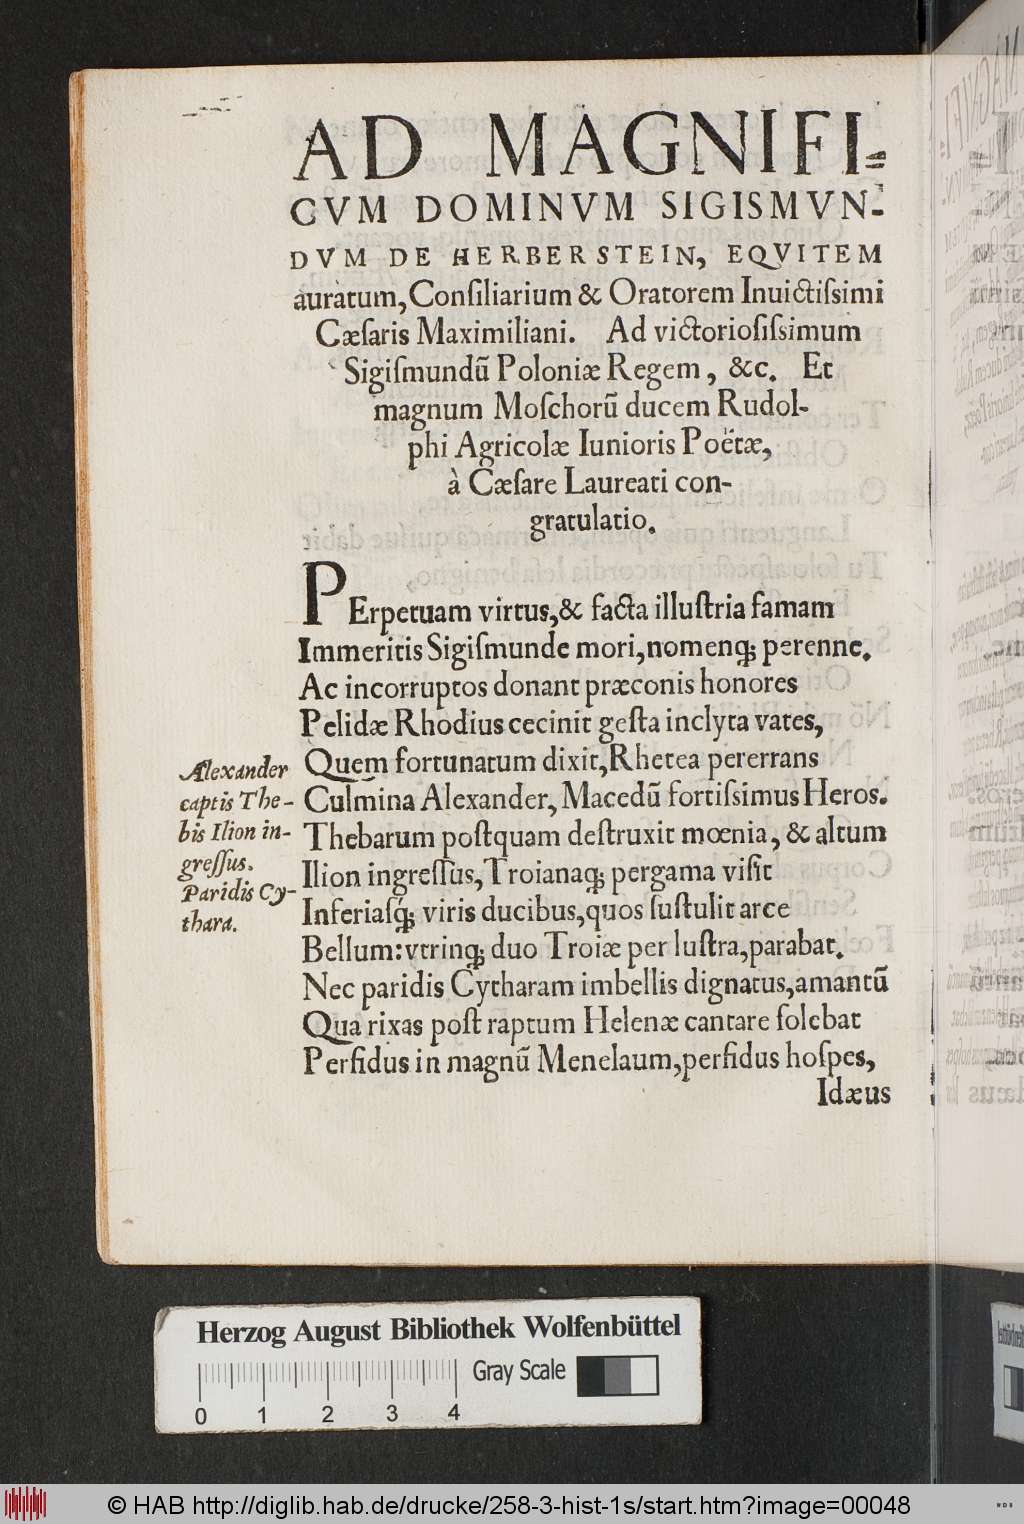 AD MAGNIFI-
CVM DOMINVM SIGISMVN-
DVM DE HERBERSTEIN, EQVITEM
auratum, Conſiliarium & Oratorem Inuictiſsimi
Cæſaris Maximiliani. Ad victorioſiſsimum
Sigiſmundū Poloniæ Regem, &c. Et
magnum Moſchorū ducem Rudol-
phi Agricolæ Iunioris Poëtæ,
à Cæſare Laureati con-
gratulatio.
PErpetuam virtus, & facta illuſtria famam
Immeritis Sigiſmunde mori, nomenq; perenne.
Ac incorruptos donant præconis honores
Pelidæ Rhodius cecinit geſta inclyta vates,
Quem fortunatum dixit, Rhetea pererrans
Culmina Alexander, Macedū fortiſsimus Heros.
Thebarum poſtquam deſtruxit mœnia, & altum
Ilion ingreſſus, Troianaq; pergama viſit
Inferiaſq́; viris ducibus, quos ſuſtulit arce
Bellum: vtrinq; duo Troiæ per luſtra, parabat.
Nec paridis Cytharam imbellis dignatus, amantū
Qua rixas poſt raptum Helenæ cantare ſolebat
Perfidus in magnū Menelaum, perfidus hoſpes,
Idæus
Alexander
captis The-
bis Ilion in-
greſſus.
Paridis Cy-
thara.
Herzog August Bibliothek Wolfenbüttel
Gray Scale
0 1 2 3 4
© HAB http://diglib.hab.de/drucke/258-3-hist-1s/start.htm?image=00048